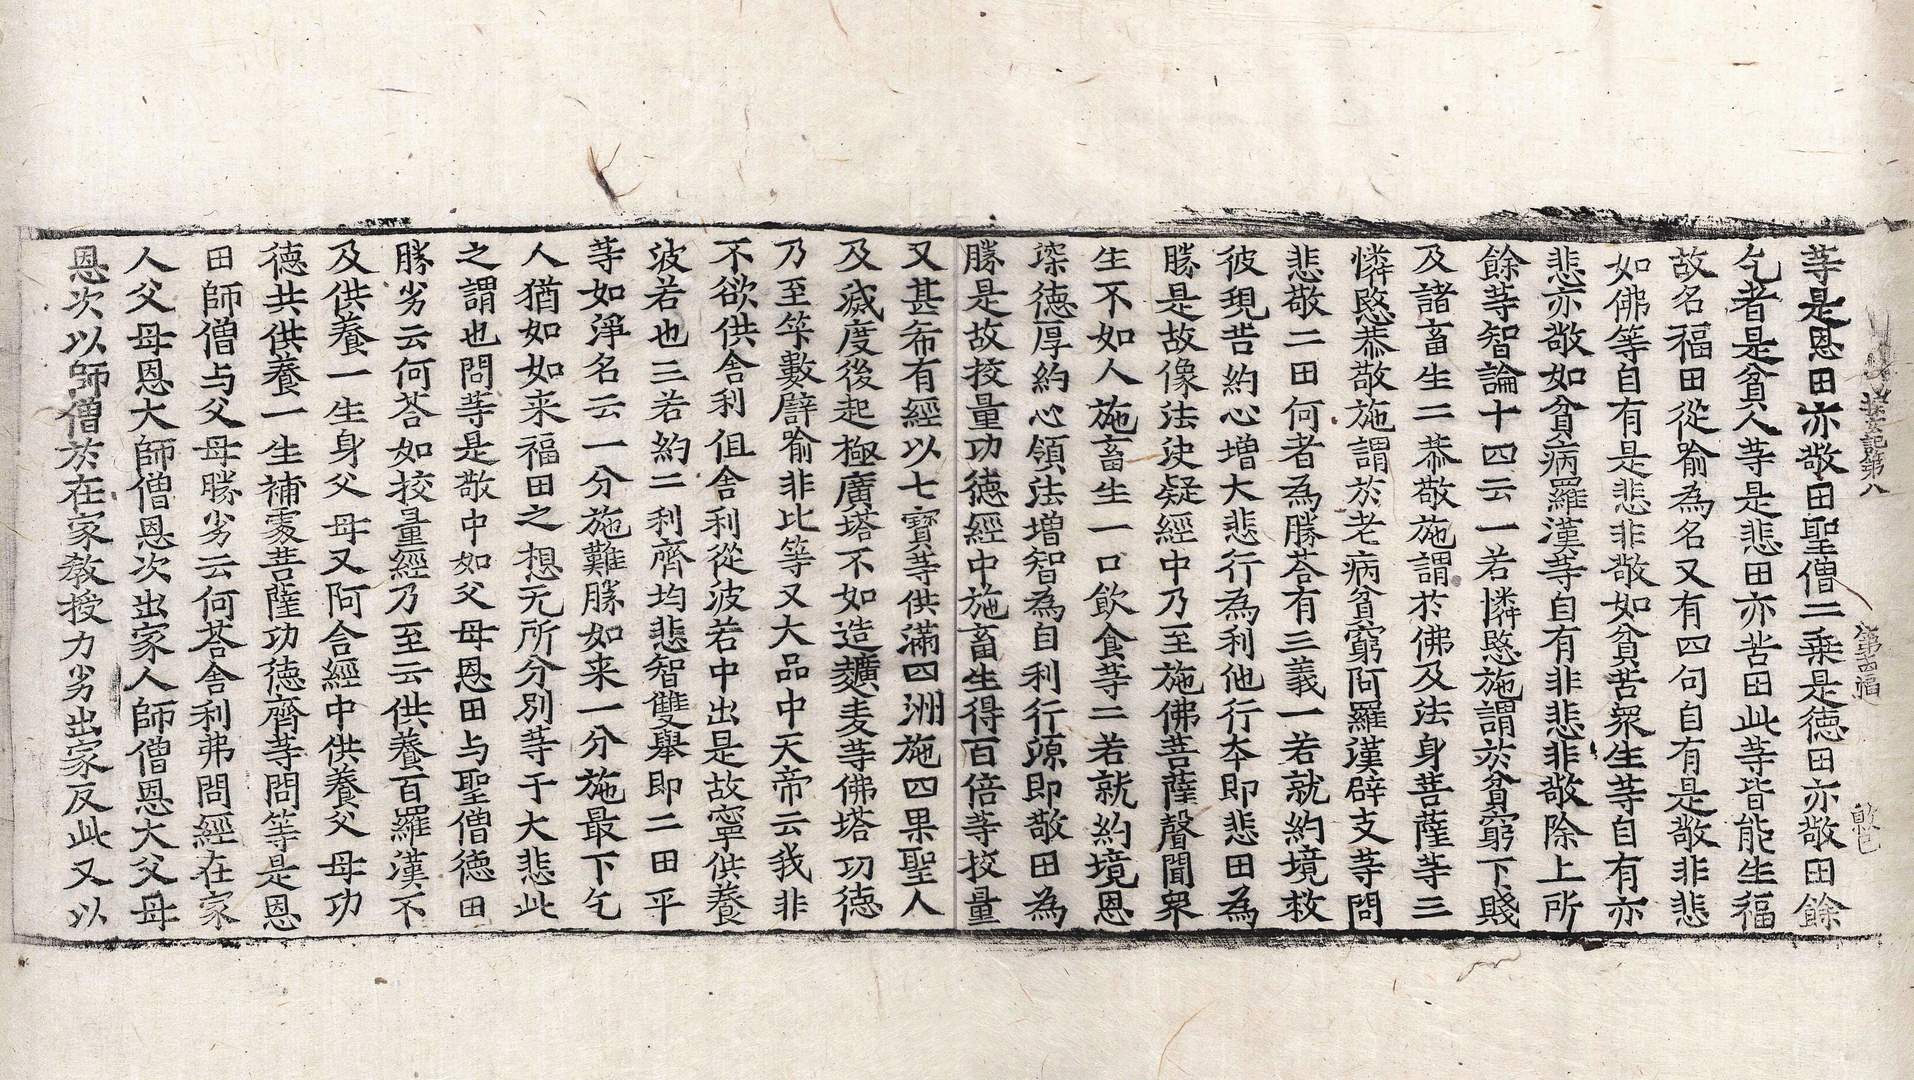 䒭是恩田亦敬田聖僧二乗是徳田亦敬田餘
乞者是貧人䒭是悲田亦苦田此等皆能生福
故名福田從喻為名又有四句自有是敬非悲
如佛等自有是悲非敬如貧苦衆生䒭自有亦
悲亦敬如貧病羅漢䒭自有非悲非敬除上所
餘䒭智論十四云一若憐愍施謂於貧窮下賤
及諸畜生二恭敬施謂於佛及法身菩薩䒭三
憐愍恭敬施謂於老病貧窮阿羅漢辟支䒭問
悲敬二田何者為勝荅有三義一若就約境救
彼現苦約心增大悲行為利他行本即悲田為
勝是故像法决疑經中乃至施佛菩薩聲聞衆
生不如人施畜生一口飲食䒭二若就約境恩
深德厚約心領法增智為自利行源即敬田為
勝是故挍量功德經中施畜生得百倍䒭挍量
又甚希有經以七寶䒭供滿四洲施四果聖人
及滅度後起極廣塔不如造麱麦䒭佛塔功德
乃至筭數譬喻非比等又大品中天帝云我非
不欲供舍利但舍利從波若中出是故寧供養
波若也三若約二利齊均悲智雙舉即二田平
等如淨名云一分施難勝如来一分施最下乞
人猶如如来福田之想无所分別等于大悲此
之謂也問䒭是敬中如父母恩田与聖僧徳田
勝劣云何荅如挍量經乃至云供養百羅漢不
及供養一生身父母又阿含經中供養父母功
德共供養一生補處菩薩功德齊等問等是恩
田師僧与父母勝劣云何荅舍利弗問經在家
人父母恩大師僧恩次出家人師僧恩大父母
恩次以師僧於在家教授力劣出家反此又以